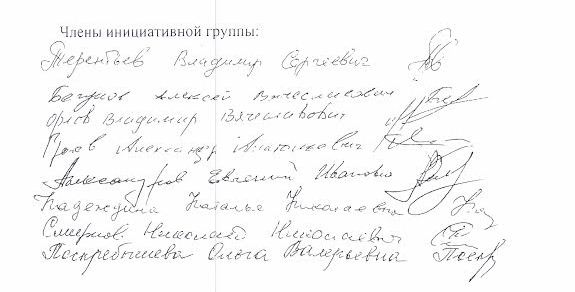 Члены инициативной группы:
Терентьев Владимир Сергеевич
Алексей Вячеславович
Орлов Владимир Вячеславович
Александр Анатольевич
Александров Евгений Иванович
Надеждина Наталья Николаевна
Смирнов Николай Николаевич
Поскребышева Ольга Валерьевна